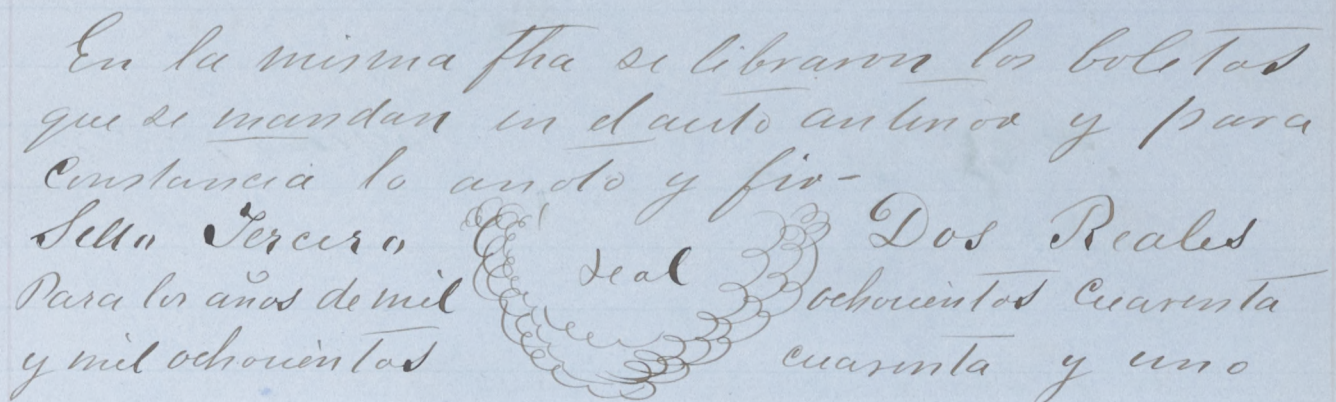 En la misma fha se libraron los boletos
que se mandan en el auto anterior y para
Constancia lo anoto y fir-
Sello Tercero seal Dos Reales
Para los años de mil ochocientos cuarenta
y mil ochocientos cuarenta y uno